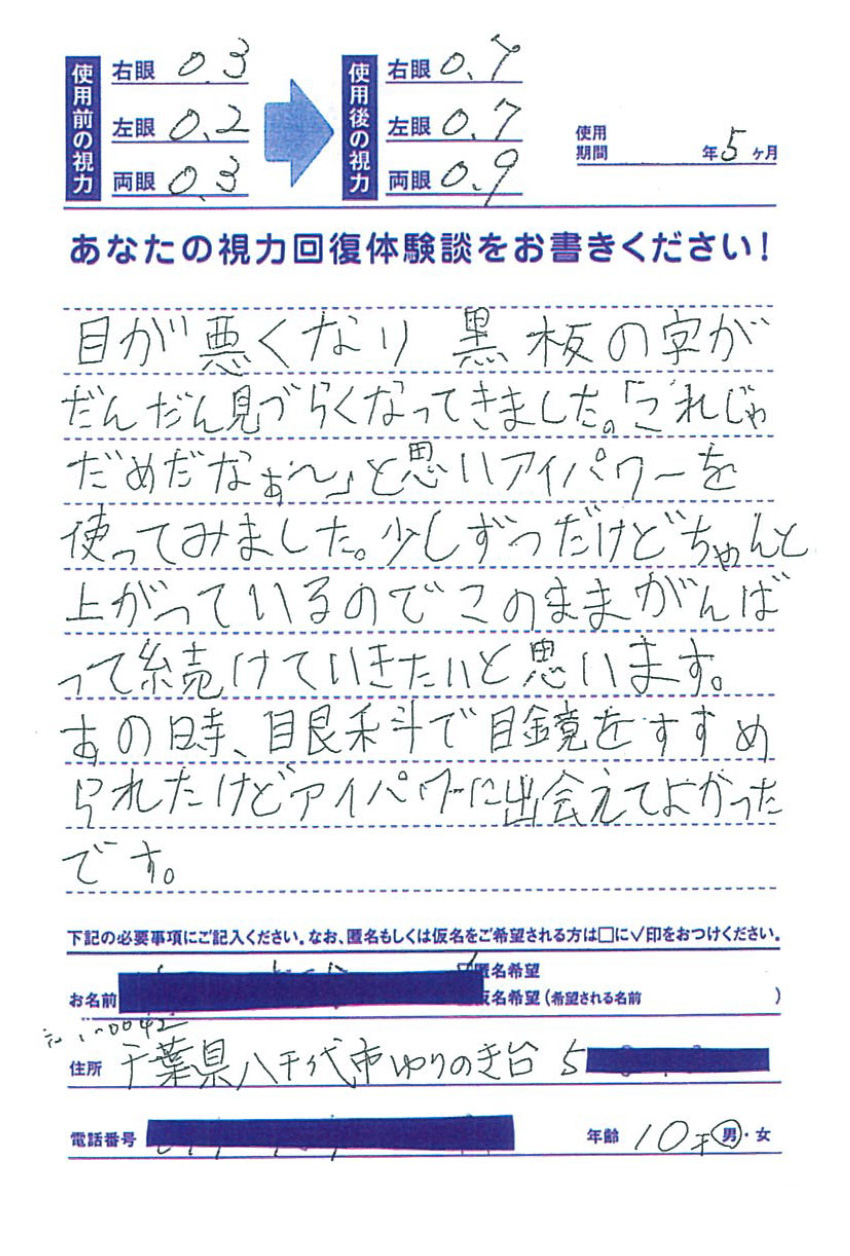 使用前の視力
右眼 0.3
左眼 0.2
両眼 0.3
使用後の視力
右眼 0.7
左眼 0.7
両眼 0.9
使用期間 年5ヶ月
あなたの視力回復体験談をお書きください!
目が悪くなり 黒板の字が
だんだん見づらくなってきました。「これじゃ
だめだなぁ〜」と思いアイパワーを
使ってみました。少しずつだけどちゃんと
上がっているのでこのままがんば
って続けていきたいと思います。
あの時、眼科で眼鏡をすすめ
られたけどアイパワーに出会えてよかった
です。
下記の必要事項にご記入ください。なお、匿名もしくは仮名をご希望される方は□に✓印をおつけください。
匿名希望
お名前 仮名希望(希望される名前 )
0042
住所 千葉県八千代市ゆりのき台 5
電話番号 年齢 10才 男・女